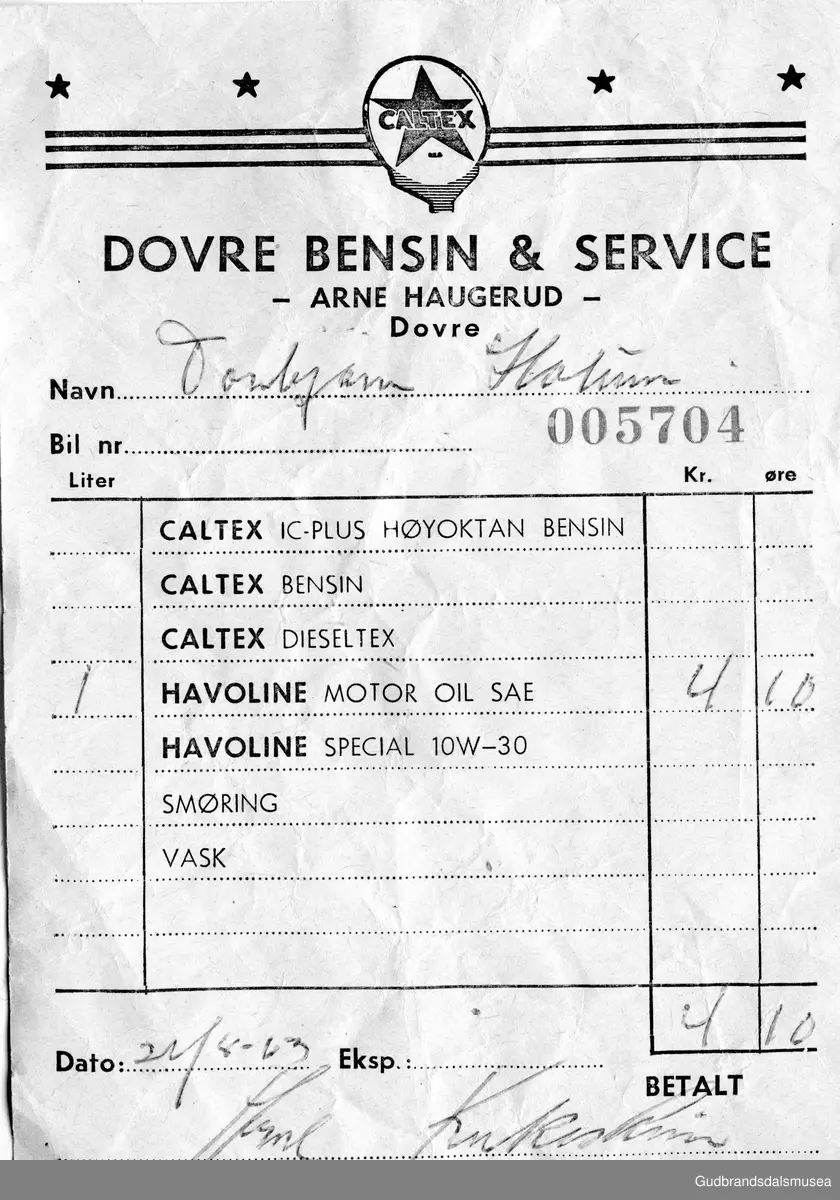 CALTEX
DOVRE BENSIN & SERVICE
- ARNE HAUGERUD -
Dovre
Navn
Bil nr 005704
Liter Kr. øre
CALTEX IC-PLUS HØYOKTAN BENSIN
CALTEX BENSIN
CALTEX DIESELTEX
1 HAVOLINE MOTOR OIL SAE 4 10
HAVOLINE SPECIAL 10W-30
SMØRING
VASK
4 10
Dato: Eksp.:
BETALT
Gudbrandsdalsmusea